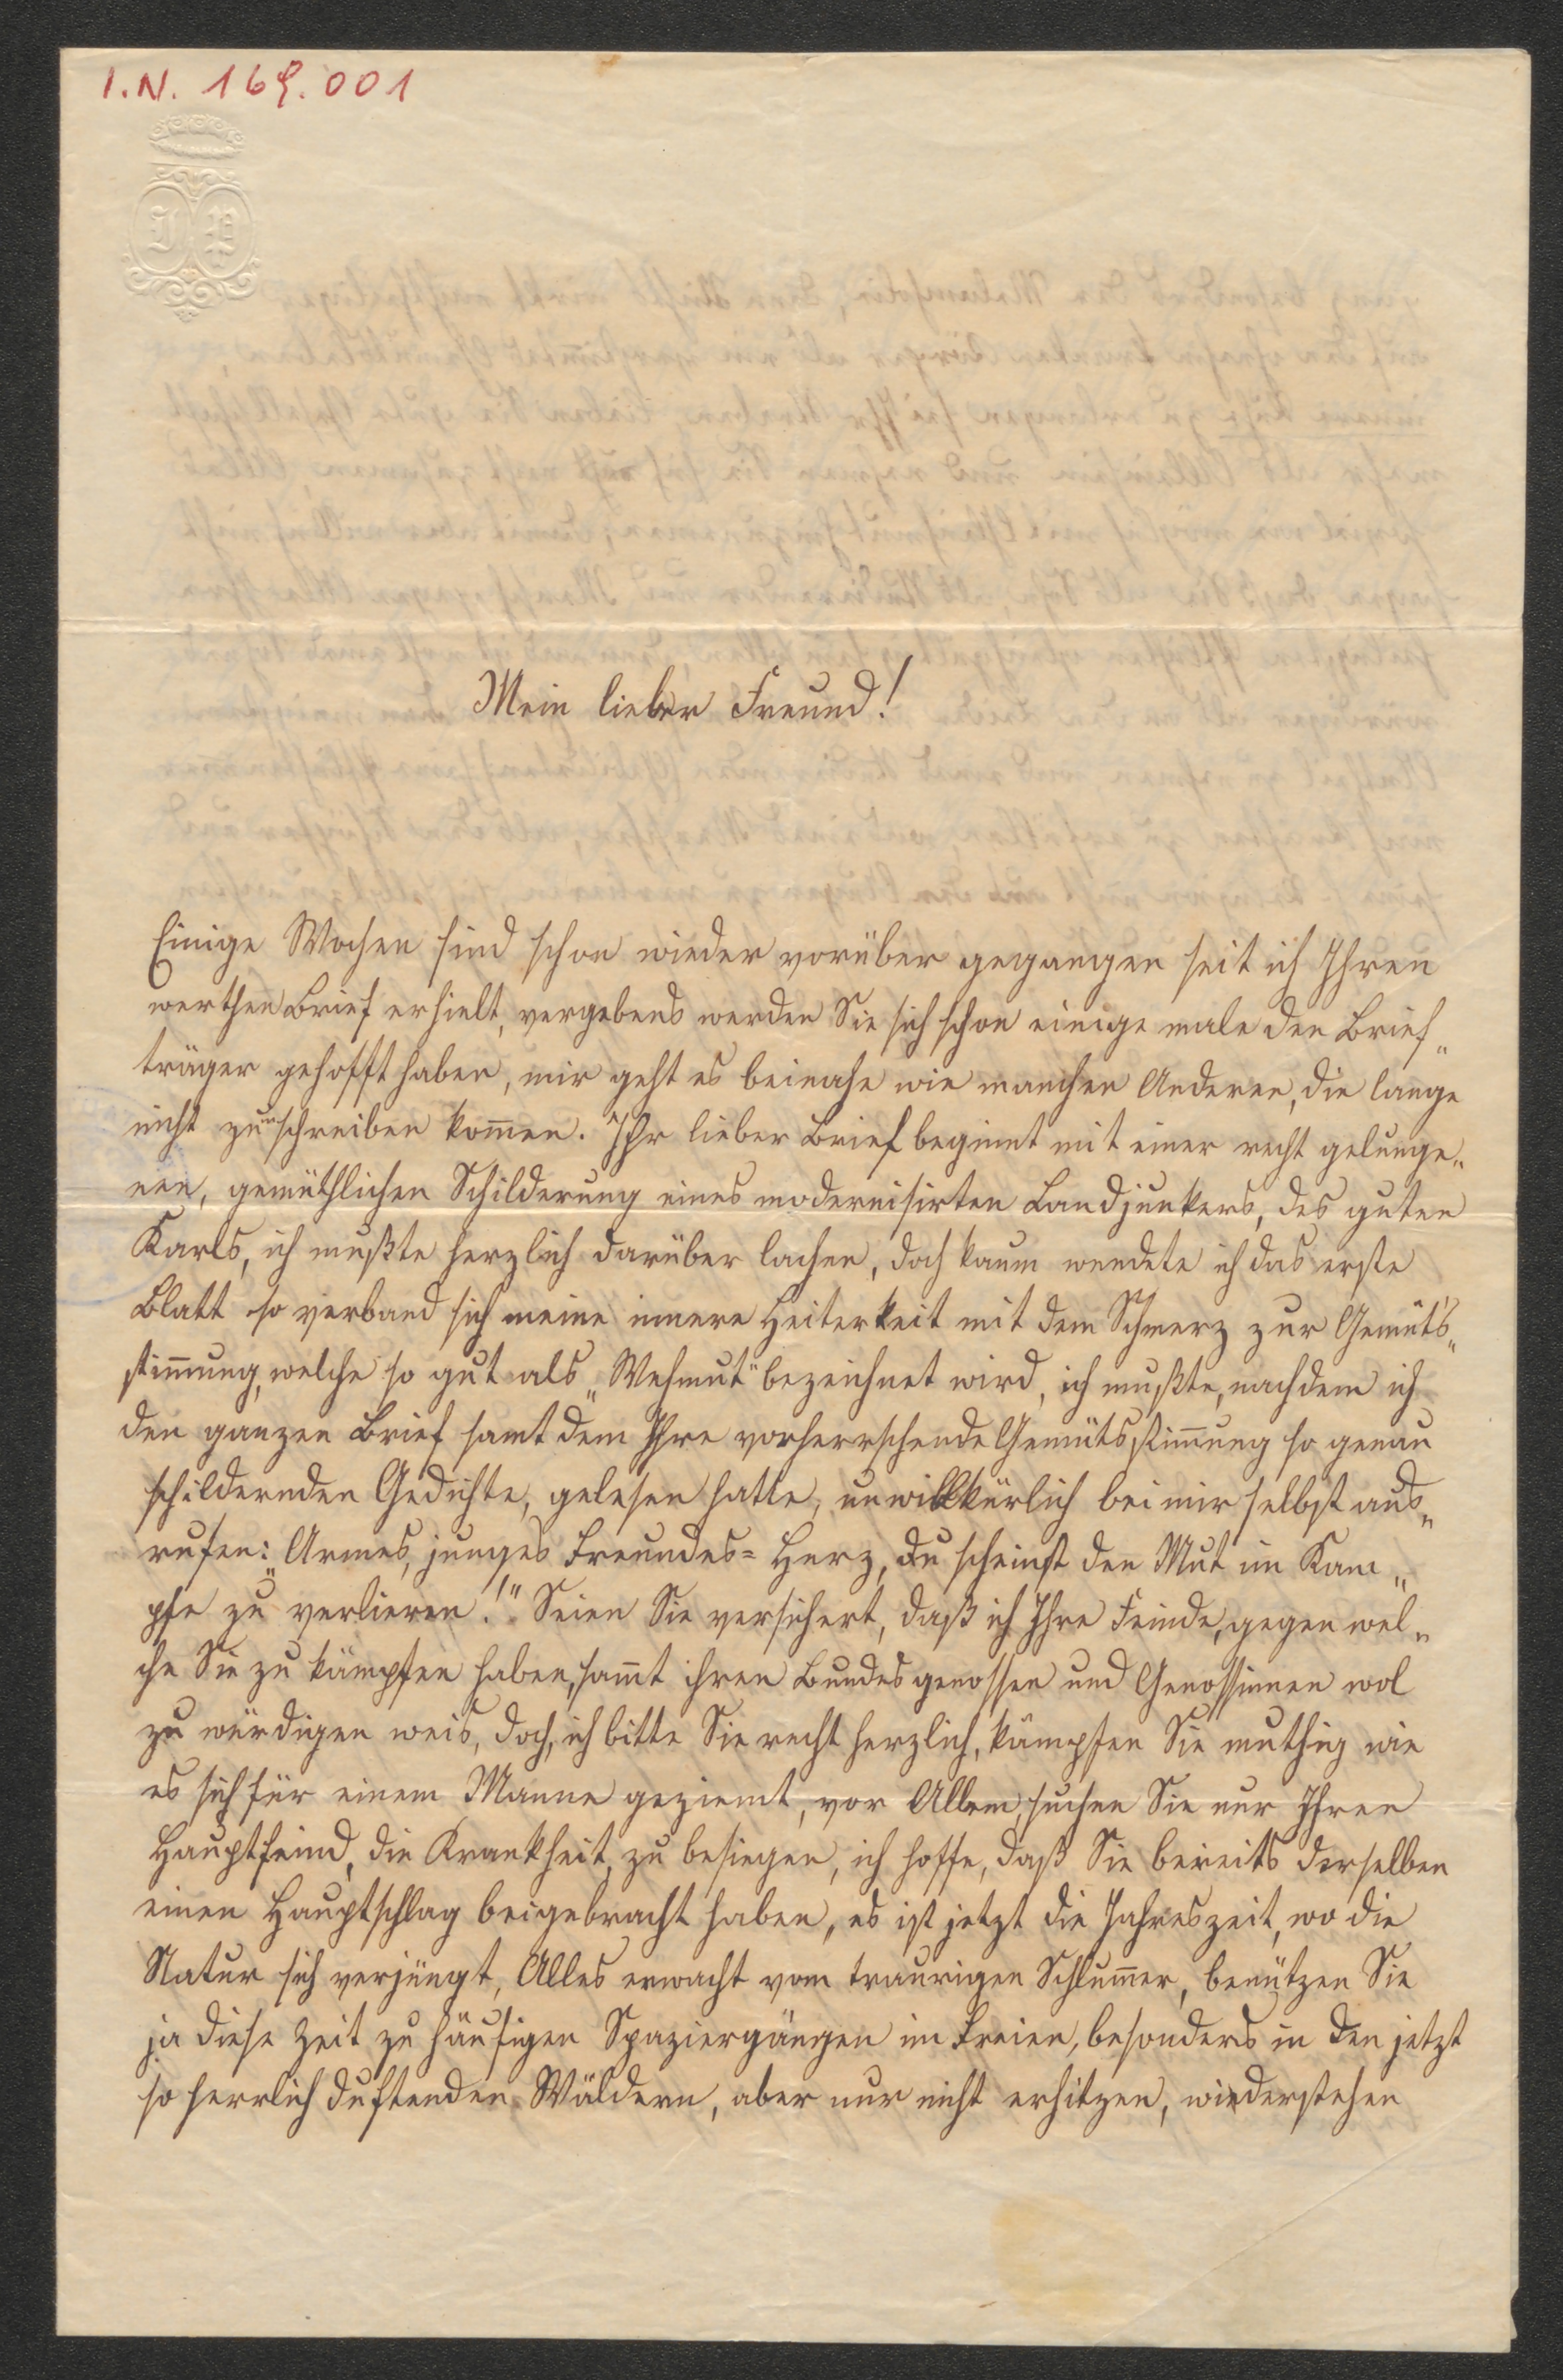 I.N. 169.001
J P
Mein lieber Freund!
Einige Wochen sind schon wieder vorüber gegangen seit ich Ihren
werthen Brief erhielt, vergebens werden Sie sich schon einige male den Brief„
träger gehofft haben, mir geht es beinahe wie manchen Anderen, die lange
nicht zum schreiben kom̄en. Ihr lieber Brief beginnt mit einer recht gelunge„
nen, gemüthlichen Schilderung eines modernisirten Landjunkers, des guten
Karls, ich mußte herzlich darüber lachen, doch kaum wendete ich das erste
Blatt so verband sich meine innere Heiterkeit mit dem Schmerz zur Gemüts„
stim̄ung, welche so gut als „Wehmut“ bezeichnet wird, ich mußte, nachdem ich
den ganzen Brief samt dem Ihre vorherrschende Gemütsstim̄ung so genau
schildernden Gedichte, gelesen hatte, unwillkürlich bei mir selbst aus„
rufen: „Armes, junges Freundes= Herz, du scheinst den Mut im Kam„
pfe zu verlieren!“ Seien Sie versichert, daß ich Ihre Feinde, gegen wel„
che Sie zu kämpfen haben, sam̄t ihren Bundesgenossen und Genossinnen wol
zu würdigen weis, doch, ich bitte Sie recht herzlich, kämpfen Sie muthig wie
es sich für einem Manne geziemt, vor Allem, suchen Sie nur Ihren
Hauptfeind, die Krankheit, zu besiegen, ich hoffe, daß Sie bereits derselben
einen Hauptschlag beigebracht haben, es ist jetzt die Jahreszeit, wo die
Natur sich verjüngt, Alles erwacht vom traurigen Schlum̄er, benützen Sie
ja diese Zeit zu häufigen Spaziergängen im Freien, besonders in den jetzt
so herrlich duftenden Wäldern, aber nur nicht erhitzen, wiederstehen